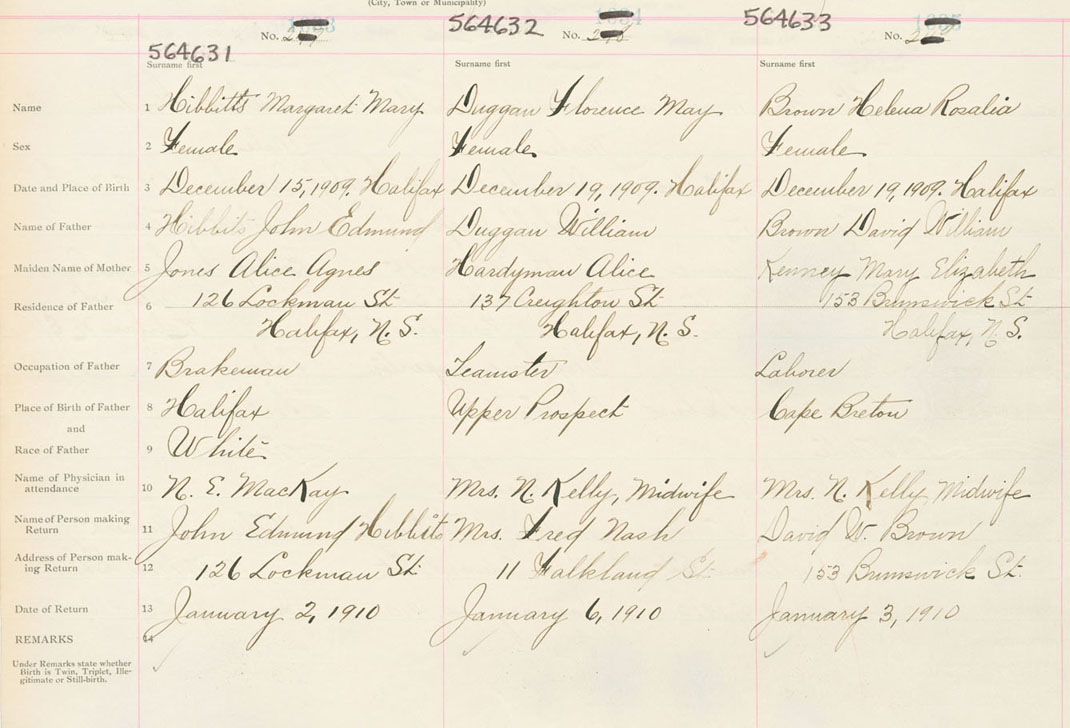 (City, Town or Municipality)
564631 No. 564632 No. 564633 No.
Surname first Surname first Surname first
Name 1 Hibbitts Margaret Mary Duggan Florence May Brown Helena Rosalia
Sex 2 Female Female Female
Date and Place of Birth 3 December 15, 1909. Halifax December 19, 1909. Halifax December 19, 1909. Halifax
Name of Father 4 Hibbits John Edmund Duggan William Brown David William
Maiden Name of Mother 5 Jones Alice Agnes Hardyman Alice Kenney Mary Elizabeth
Residence of Father 6 126 Lockman St. 137 Creighton St. 153 Brunswick St.
Halifax, N. S. Halifax, N. S. Halifax, N. S.
Occupation of Father 7 Brakeman Teamster Laborer
Place of Birth of Father 8 Halifax Upper Prospect Cape Breton
and
Race of Father 9 White
Name of Physician in
attendance 10 N. E. MacKay Mrs. N. Kelly, Midwife Mrs. N. Kelly, Midwife
Name of Person making
Return 11 John Edmund Hibbits Mrs. Fred Nash David W. Brown
Address of Person mak-
ing Return 12 126 Lockman St. 11 Falkland St. 153 Brunswick St.
Date of Return 13 January 2, 1910 January 6, 1910 January 3, 1910
REMARKS 14
Under Remarks state whether
Birth is Twin, Triplet, Ille-
gitimate or Still-birth.